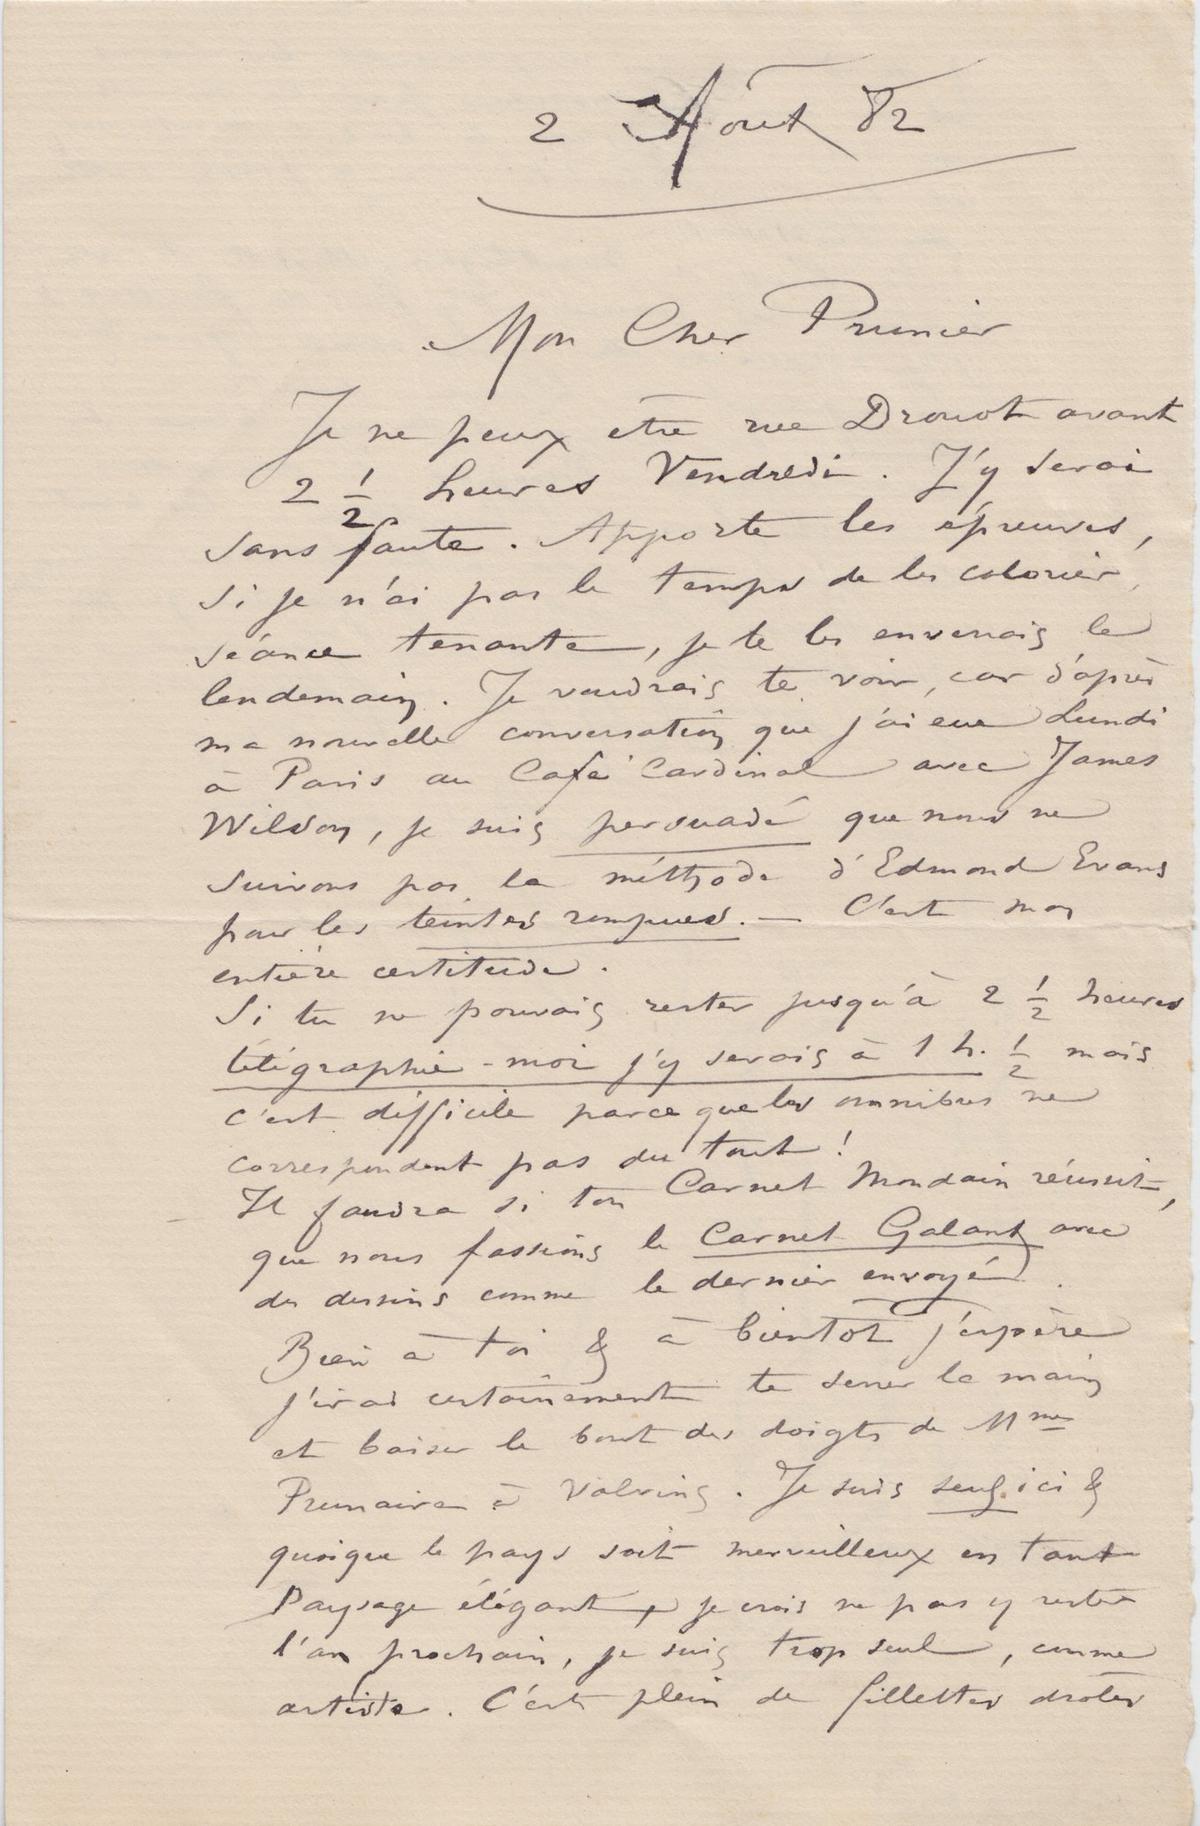 2 Août 82
Mon Cher Prunier
Je ne peux être rue Drouot avant
2 1/2 heures Vendredi. J'y serai
sans faute. Apporte les épreuves,
si je n'ai pas le temps de les colorier,
séance tenante, je te les enverrais le
lendemain. Je voudrais te voir, car d'après
ma nouvelle conversation que j'ai eue Lundi
à Paris au Café Cardinal avec James
Wilson, je suis persuadé que nous ne
suivons pas la méthode d'Edmond Evans
pour les teintes rompues. — C'est mon
entière certitude.
Si tu ne pouvais rester jusqu'à 2 1/2 heures
télégraphie-moi j'y serais à 1 h. 1/2 mais
c'est difficile parce que les omnibus ne
correspondent pas du tout !
Il faudra si ton Carnet Mondain réussit,
que nous fassions le Carnet Galant avec
des dessins comme le dernier envoyé.
Bien à toi & à bientôt j'espère
j'irai certainement te serrer la main
et baiser le bout des doigts de Mme
Prunaire à Valvins. Je suis seul ici &
quoique le pays soit merveilleux en tant
Paysage élégant, je crois ne pas y rester
l'an prochain, je suis trop seul, comme
artiste. C'est plein de fillettes drôles